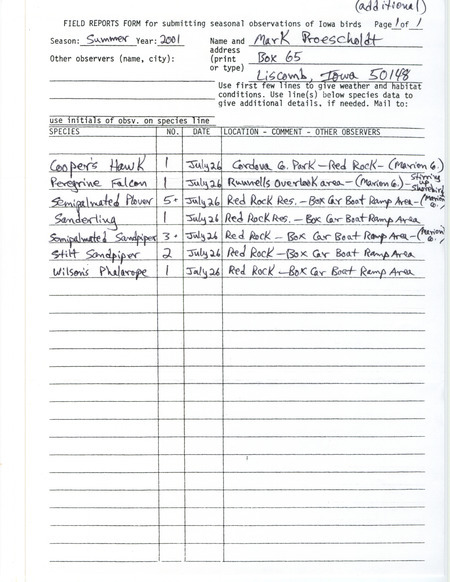 (additional)
FIELD REPORTS FORM for submitting seasonal observations of Iowa birds Page 1 of 1
Season: Summer Year: 2001 Name and Mark Proescholdt
address
Other observers (name, city): (print Box 65
or type) Liscomb, Iowa 50148
Use first few lines to give weather and habitat
conditions. Use line(s) below species data to
give additional details, if needed. Mail to:
use initials of obsv. on species line
SPECIES NO. DATE LOCATION - COMMENT - OTHER OBSERVERS
Cooper's Hawk 1 July 26 Cordova C. Park - Red Rock - (Marion Co.)
Peregrine Falcon 1 July 26 Runnells Overlook area - (Marion Co.) - Stirring up Shorebirds
Semipalmated Plover 5+ July 26 Red Rock Res. - Box Car Boat Ramp Area - (Marion Co.)
Sanderling 1 July 26 Red Rock Res. - Box Car Boat Ramp Area
Semipalmated Sandpiper 3+ July 26 Red Rock - Box Car Boat Ramp Area - (Marion Co.)
Stilt Sandpiper 2 July 26 Red Rock - Box Car Boat Ramp Area
Wilson's Phalarope 1 July 26 Red Rock - Box Car Boat Ramp Area